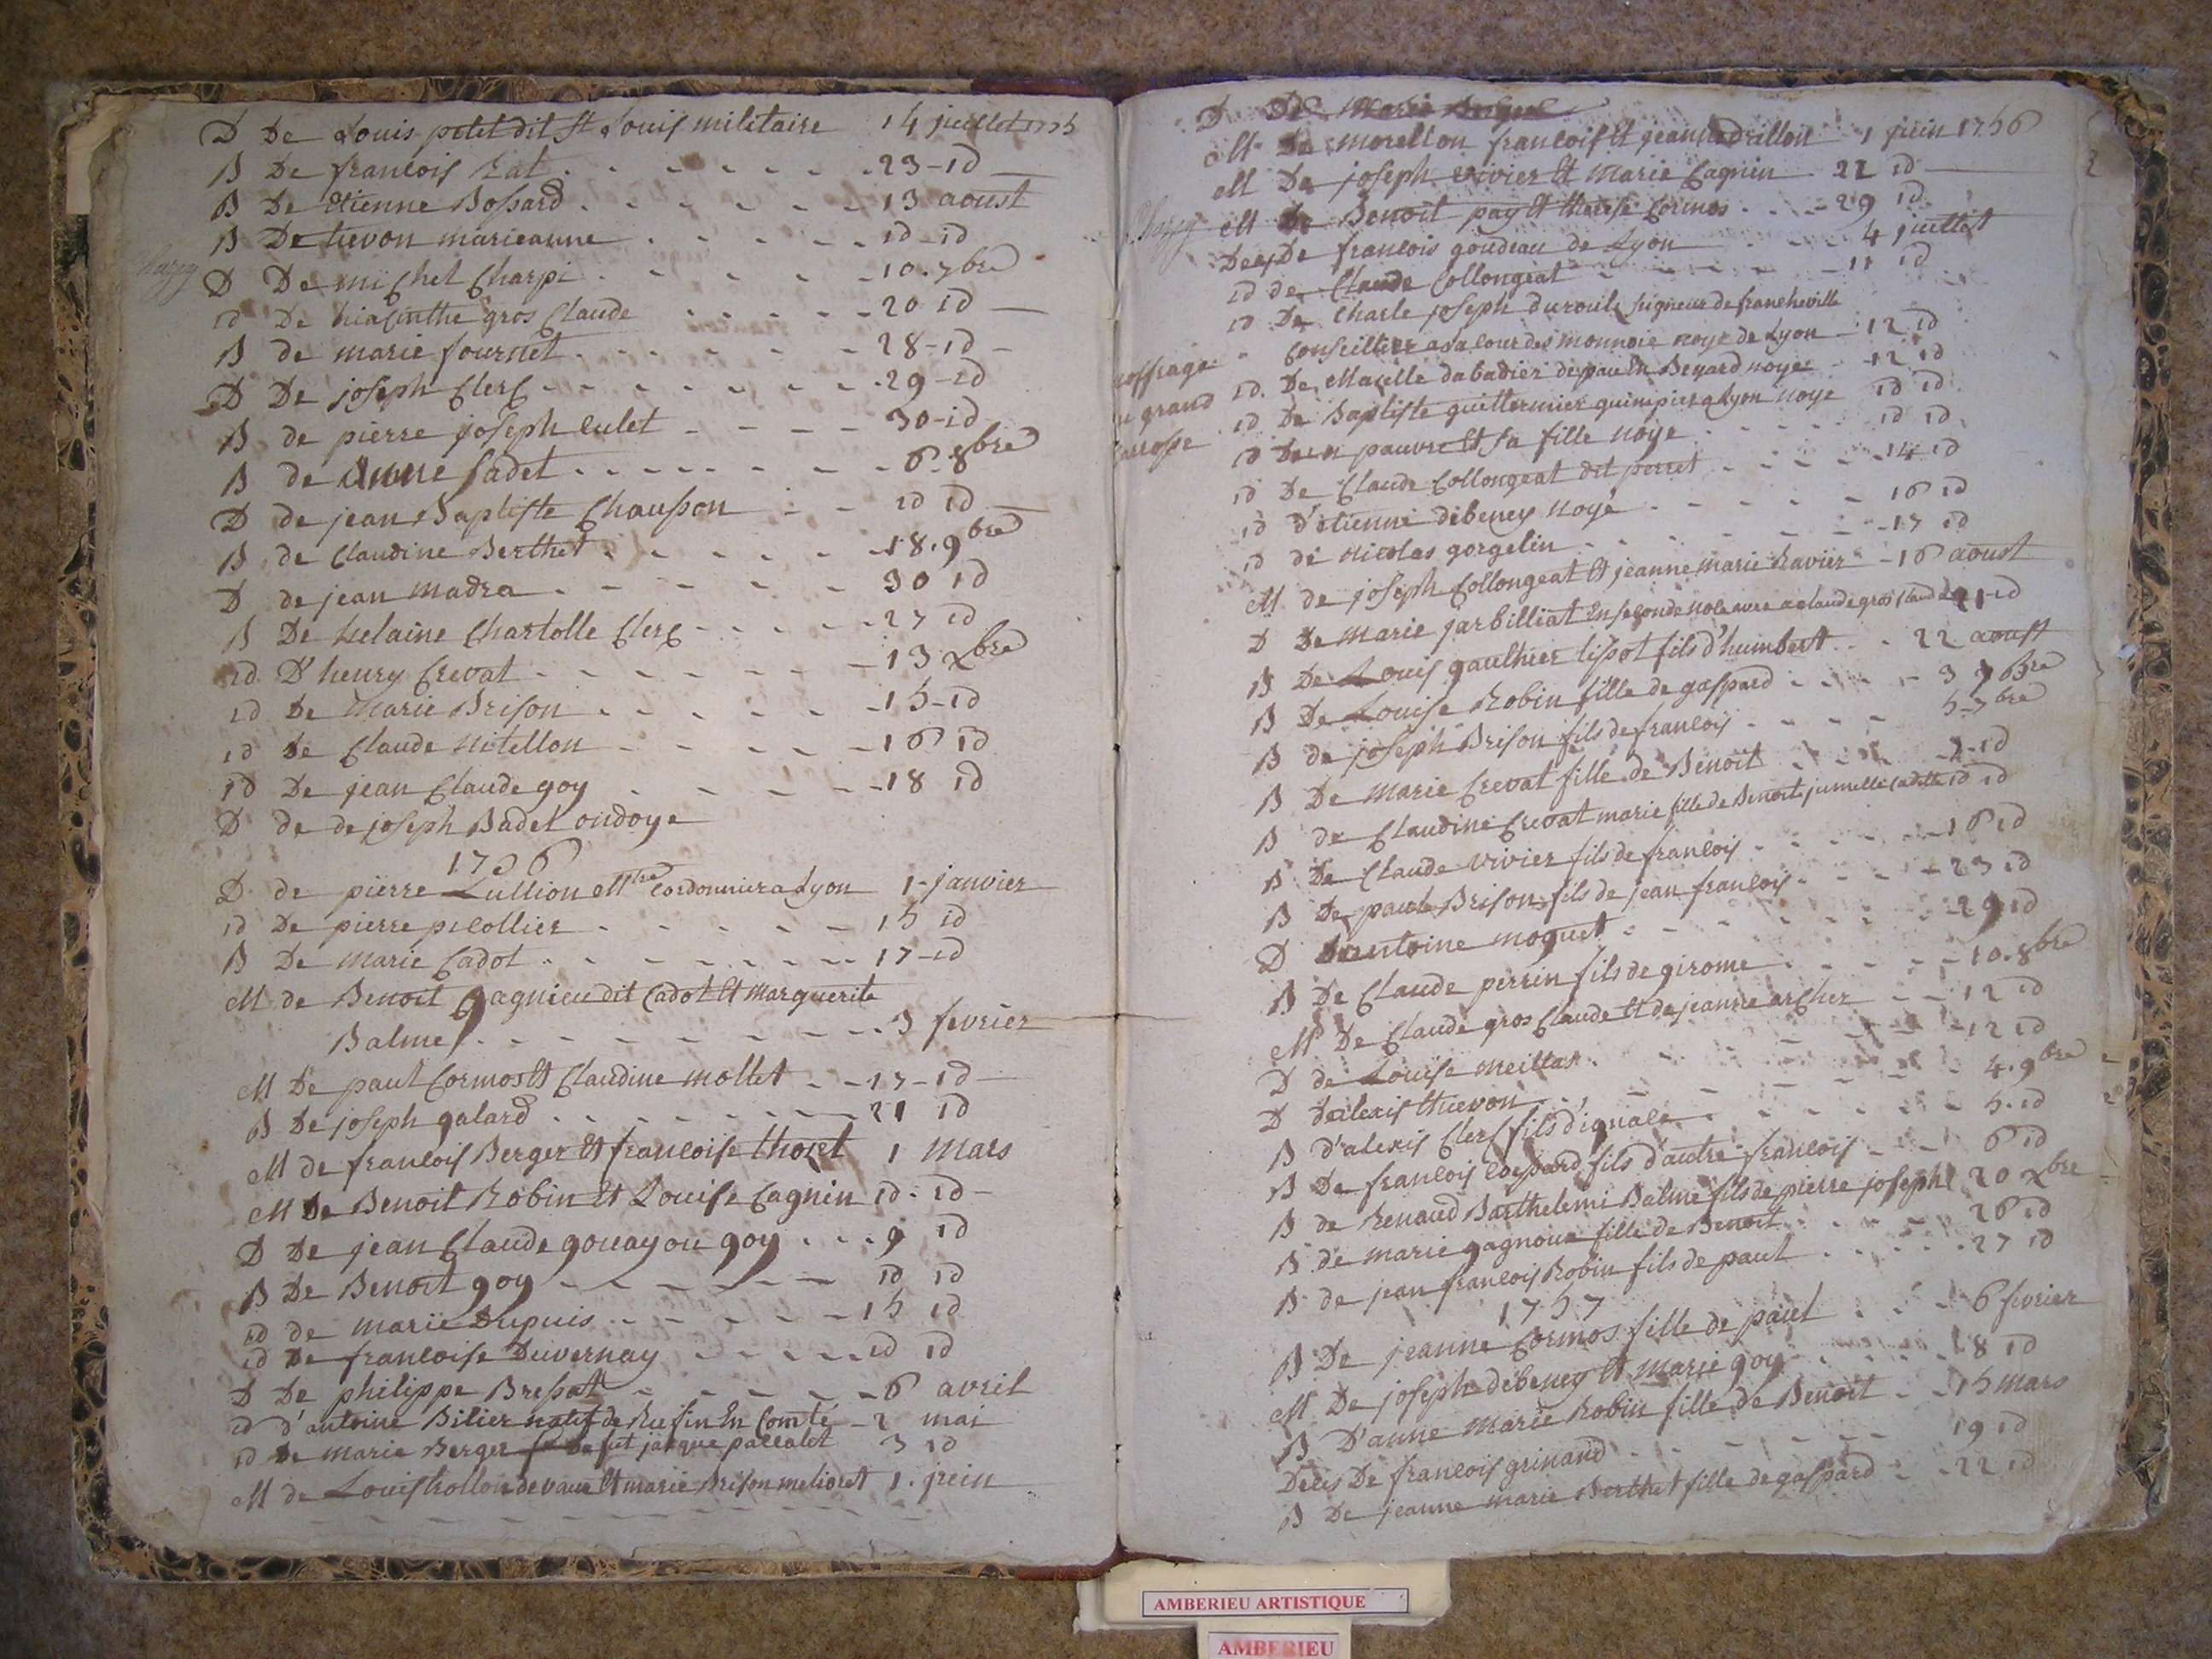 D De Louis petit dit St Louis militaire 14 juillet 1755
B De francois Rat 23 id
B De Etienne Bossard 13 aoust
B De tievon marieanne id id
D De michel Charpi 10. 7bre
id De hiacinthe gros Claude 20 id
B de marie fournet 28 id
D De joseph Clerc 29 id
B de pierre joseph culet 30 id
B de Anne Cadet 6. 8bre
D de jean Baptiste Chausson id id
B de Claudine Berthet 18. 9bre
D de jean Madra 30 id
B De helaine Charlotte Clerc 27 id
id D'henry Crevat 13 xbre
id De Marie Brison 15 id
id De Claude Nitellon 16 id
id De jean Claude goy 18 id
D de de joseph Badet ondoye
1756
D de pierre Lullion Mtre Cordonnier a Lyon 1 janvier
id De pierre picollier 15 id
B De Marie Cadot 17 id
M de Benoit Gagnieu dit Cadot Et Marguerite
Balme 3 fevrier
M De paul Cormos Et Claudine mollet 17 id
B De joseph galard 21 id
M de francois Berger Et francoise thozet 1 Mars
M De Benoit Robin Et Louise Cagnin id. id
D De jean Claude gouay ou goy 9 id
B De Benoit goy id id
id de marie Dupuis 15 id
id De francoise Duvernay id id
D De philippe Bressat 6 avril
id d'antoine Bilier natif de Rufin En Comté 2 mai
id De marie Berger fe De fut jacque pallalet 3 id
M de Louis trollon de vaux Et marie Brison melioret 1. juin
D De Marie
M De morellon francois Et jeanne drillon 1 juin 1756
M De joseph vivier Et Marie Cagnin 22 id
M De Benoit pay Et therese Cormos 29 id
Deces De francois goudeau de Lyon 4 juillet
id de Claude Collongeat 11 id
id De Charle joseph duroule seigneur de francheville
Conseiller a sa Cour des monnoie noye de Lyon 12 id
id. De Macelle dabadier depau En Bear noye 12 id
id De Baptiste guillermier quimpier a Lyon noye id id
id D'un pauvre Et sa fille noye id id
id De Claude Collongeat dit perret 14 id
id d'etienne debeney noyé 16 id
id de nicolas gorgelin 17 id
M de joseph Collongeat Et jeanne marie Ravier 16 aoust
D De Marie jarbilliat En seconde noce avec a claude gros claude 21 id
B De Louis gaulthier lissot fils d'humbert 22 aoust
B De Louise Robin fille de gaspard 3 7bre
B de joseph Brison fils de francois 5 7bre
B De Marie Crevat fille de Benoit 7 id
B de Claudine Crevat marie fille de Benoit jumelle id id
B De Claude vivier fils de francois 16 id
B De paul Brison fils de jean francois 23 id
D D'antoine moguet 29 id
B De Claude perrin fils de girome 10. 8bre
M De Claude gros Claude Et de jeanne archer 12 id
D de Louise meillas 12 id
D d'alexis thievon 4. 9bre
B d'alexis Clerc fils d'ignace 5. id
B De francois fils d'autre francois 6 id
B de Renaud Barthelemi Balme fils de pierre joseph 20 xbre
B de marie gagnoux fille de Benoit 26 id
B de jean francois Robin fils de paul 27 id
1757
B De jeanne Cormos fille de paul 6 fevrier
M De joseph debeney Et Marie goy 8 id
B D'anne Marie Robin fille de Benoit 15 mars
Deces De francois grinand 19 id
B De jeanne marie Berthet fille de gaspard 22 id
AMBERIEU ARTISTIQUE
AMBERIEU